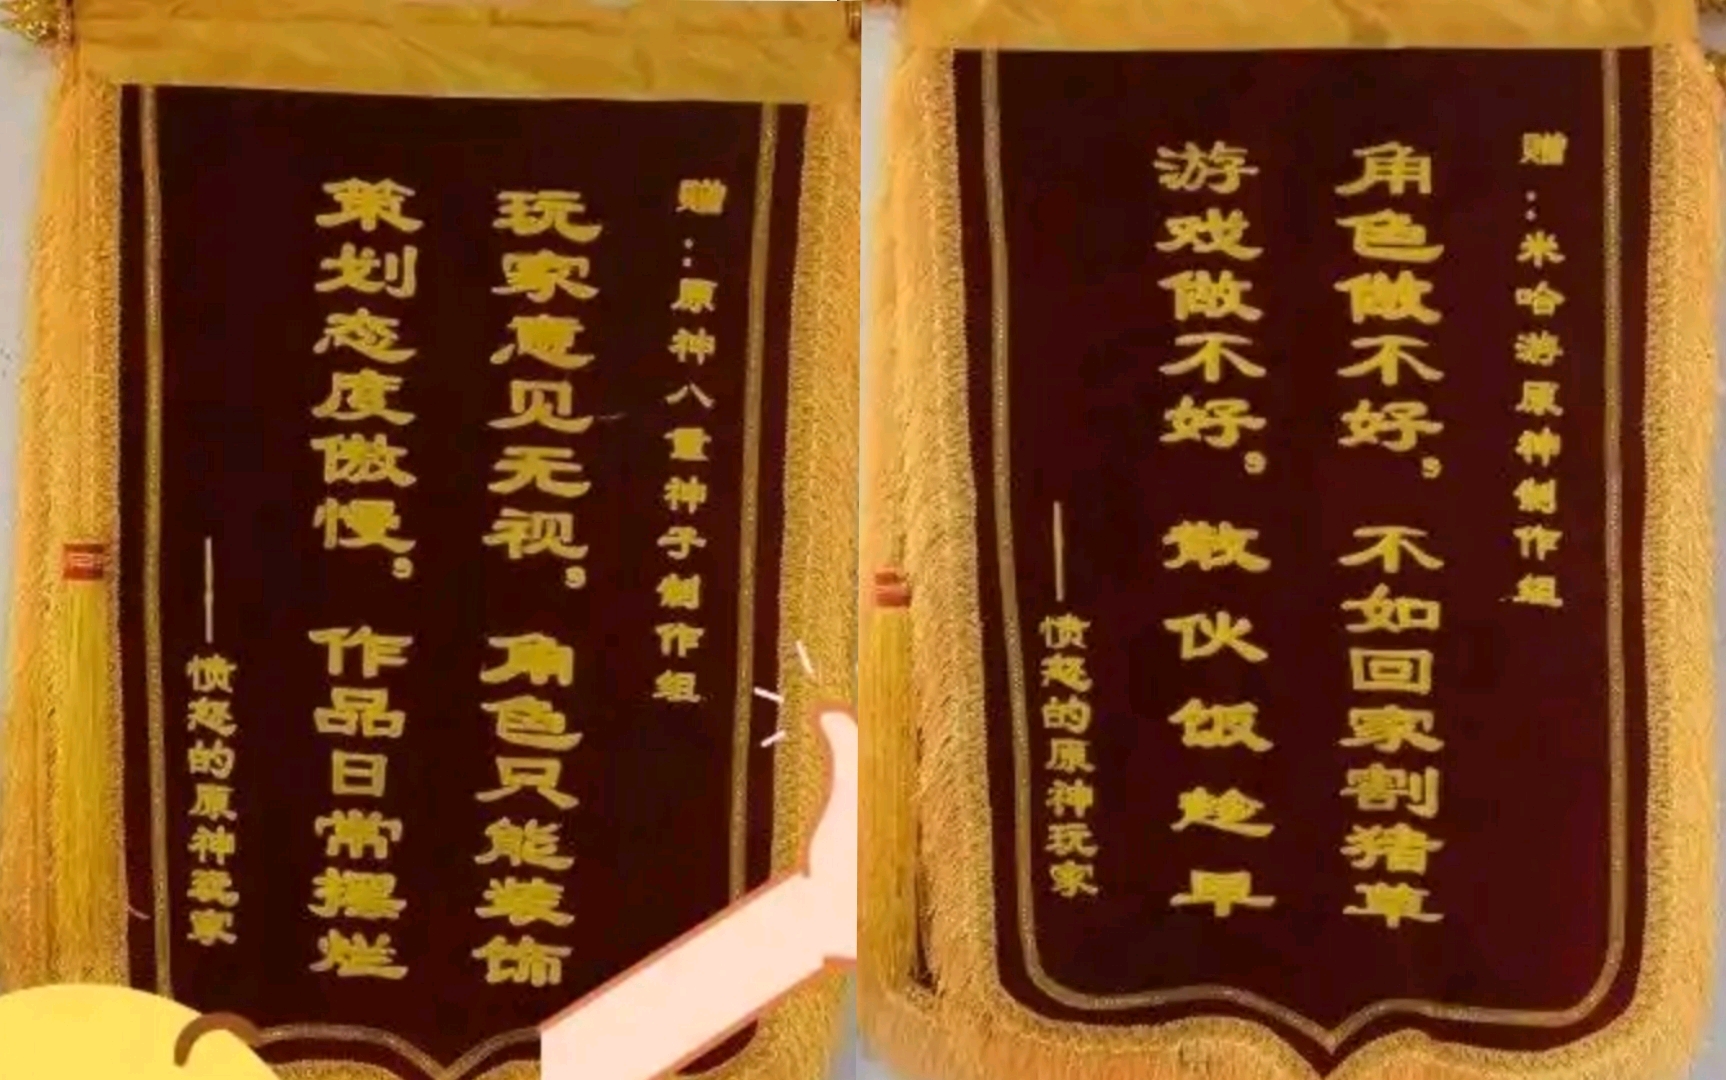 赠：原神八重神子制作组
玩家意见无视，角色只能装饰
策划态度傲慢，作品日常摆烂
——愤怒的原神玩家
赠：米哈游原神制作组
角色做不好，不如回家割猪草
游戏做不好，散伙饭趁早
——愤怒的原神玩家